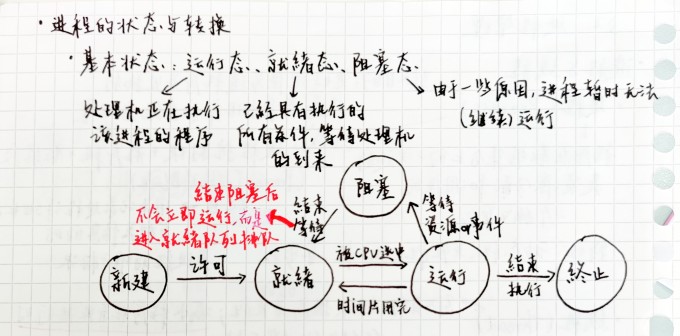 ·进程的状态与转换
·基本状态：运行态、就绪态、阻塞态
处理机正在执行
该进程的程序
已经具有执行的
所有条件，等待处理机
的到来
由于一些原因，进程暂时无法
(继续)运行
结束阻塞后
不会立即运行，而是
进入就绪队列排队
阻塞
结束
等待
等待
资源or事件
新建
许可
就绪
被CPU选中
时间片用完
运行
结束
执行
终止